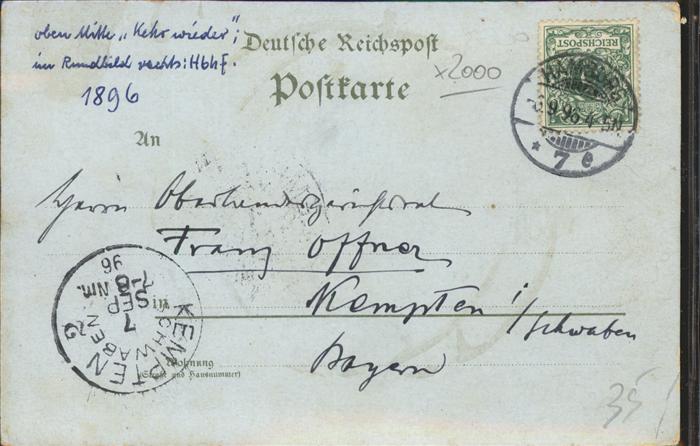 oben Mitte „Kehrwieder";
im Rundbild rechts: Hbhf.
1896
Deutsche Reichspost
Postkarte
x2000
REICHSPOST
HAMBURG
9.96
* 7 e
An
Herrn Oberlandesgerichtsrat
Franz Offner
in Kempten i/Schwaben
Bayern
Wohnung
(Straße und Hausnummer)
KEMPTEN
SCHWABEN
7
SEP
7-8 Nm.
96
35